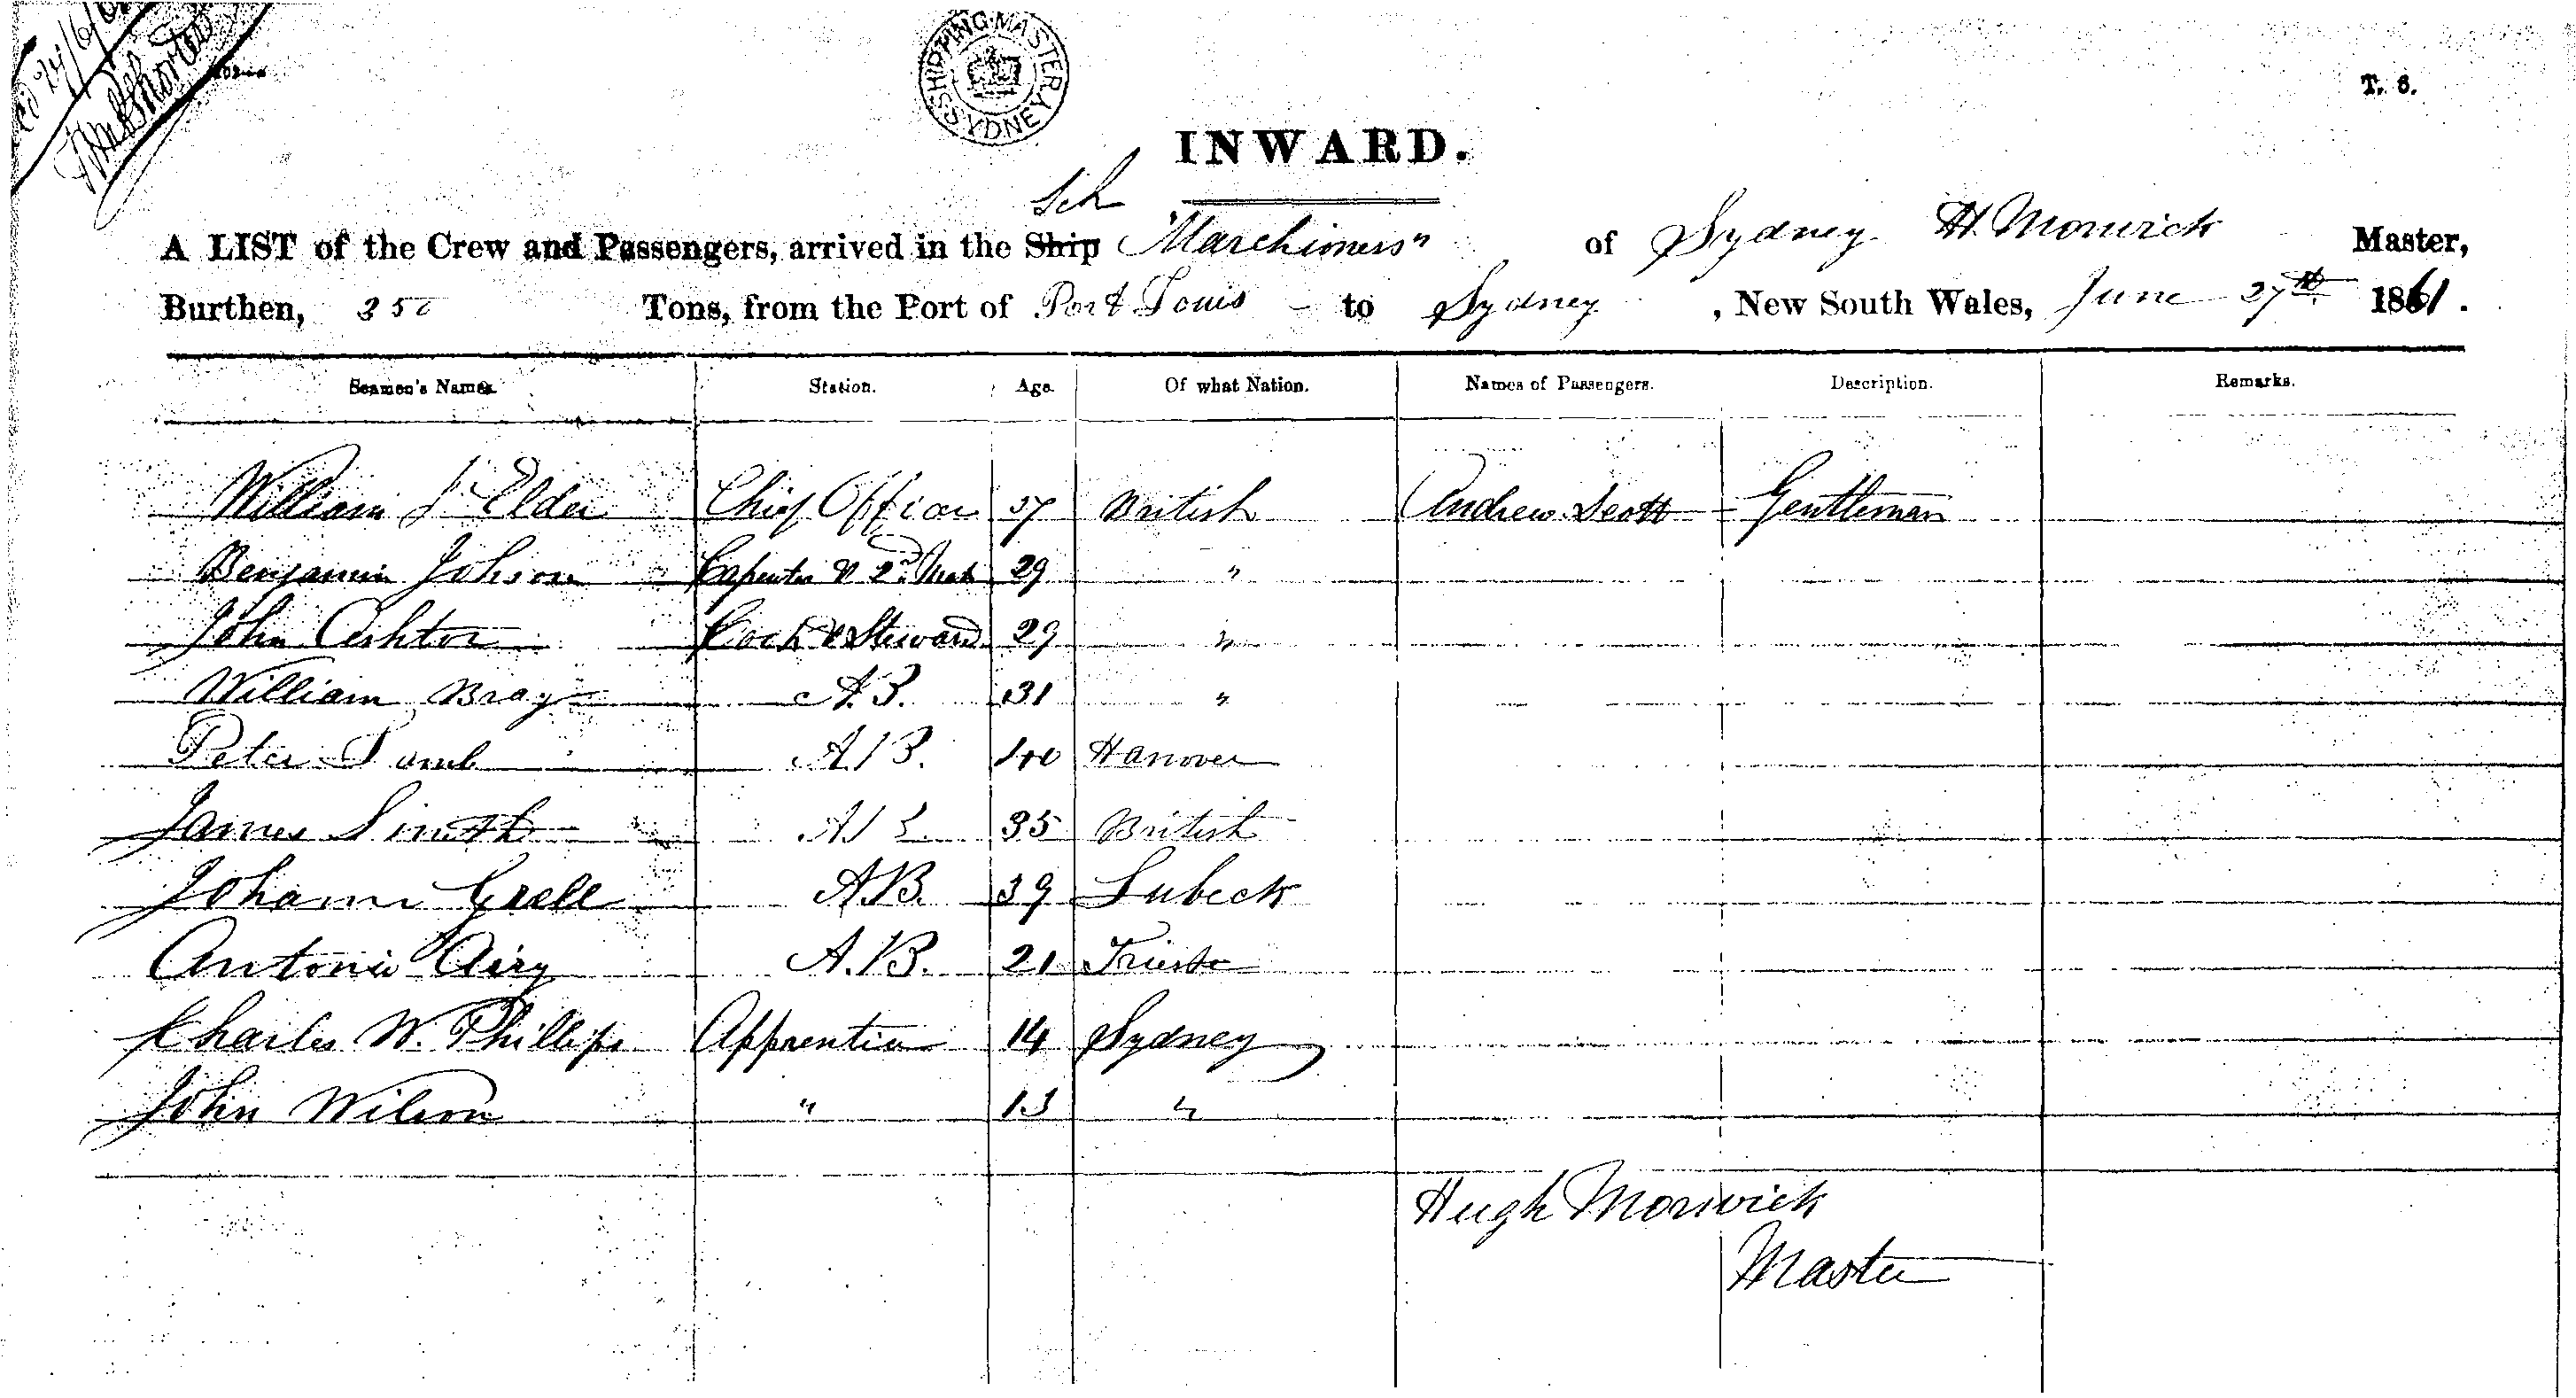 SHIPPING MASTER SYDNEY
T. 8.
INWARD.
Sch
A LIST of the Crew and Passengers, arrived in the Ship "Marchioness" of Sydney H. Morwick Master,
Burthen, 350 Tons, from the Port of Port Louis to Sydney, New South Wales, June 27th 1861.
Seamen's Names. Station. Age. Of what Nation. Names of Passengers. Description. Remarks.
William J Elder Chief Officer 37 British Andrew Scott Gentleman
Benjamin Johson Carpenter & 2nd Mate 29 "
John Ashton Cook & Steward 29 "
William Bray A.B. 31 "
Peter Lamb A.B. 40 Hanover
James Smith A.B. 35 British
Johann Grell A.B. 39 Lubeck
Antonio Airy A.B. 21 Trieste
Charles W. Phillips Apprentice 14 Sydney
John Wilson " 13 "
Hugh Morwick
Master